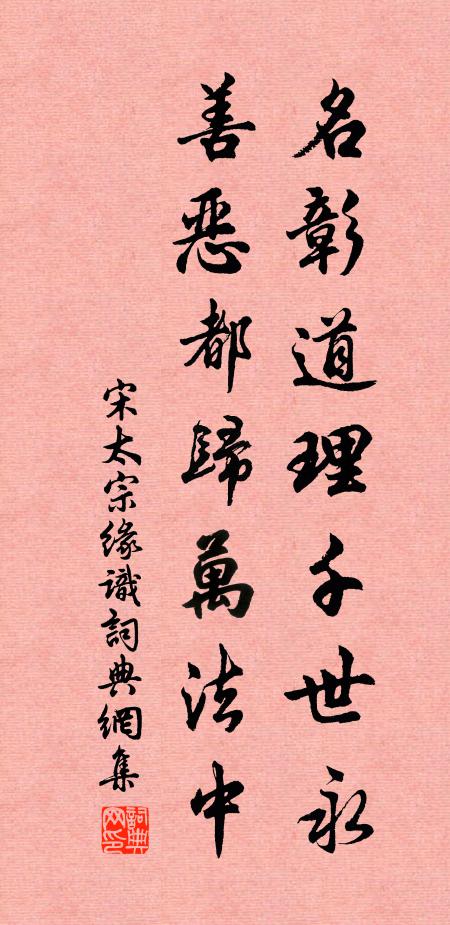 名彰道理千世永
善惡都歸萬法中
宋太宗緣識詞典網集
詞典网印